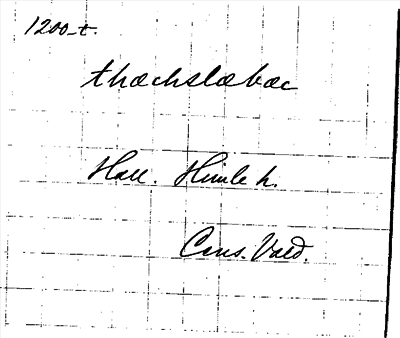 1200-t.
thæchslæbæc
Hall. Himle h.
Cons. Vald.